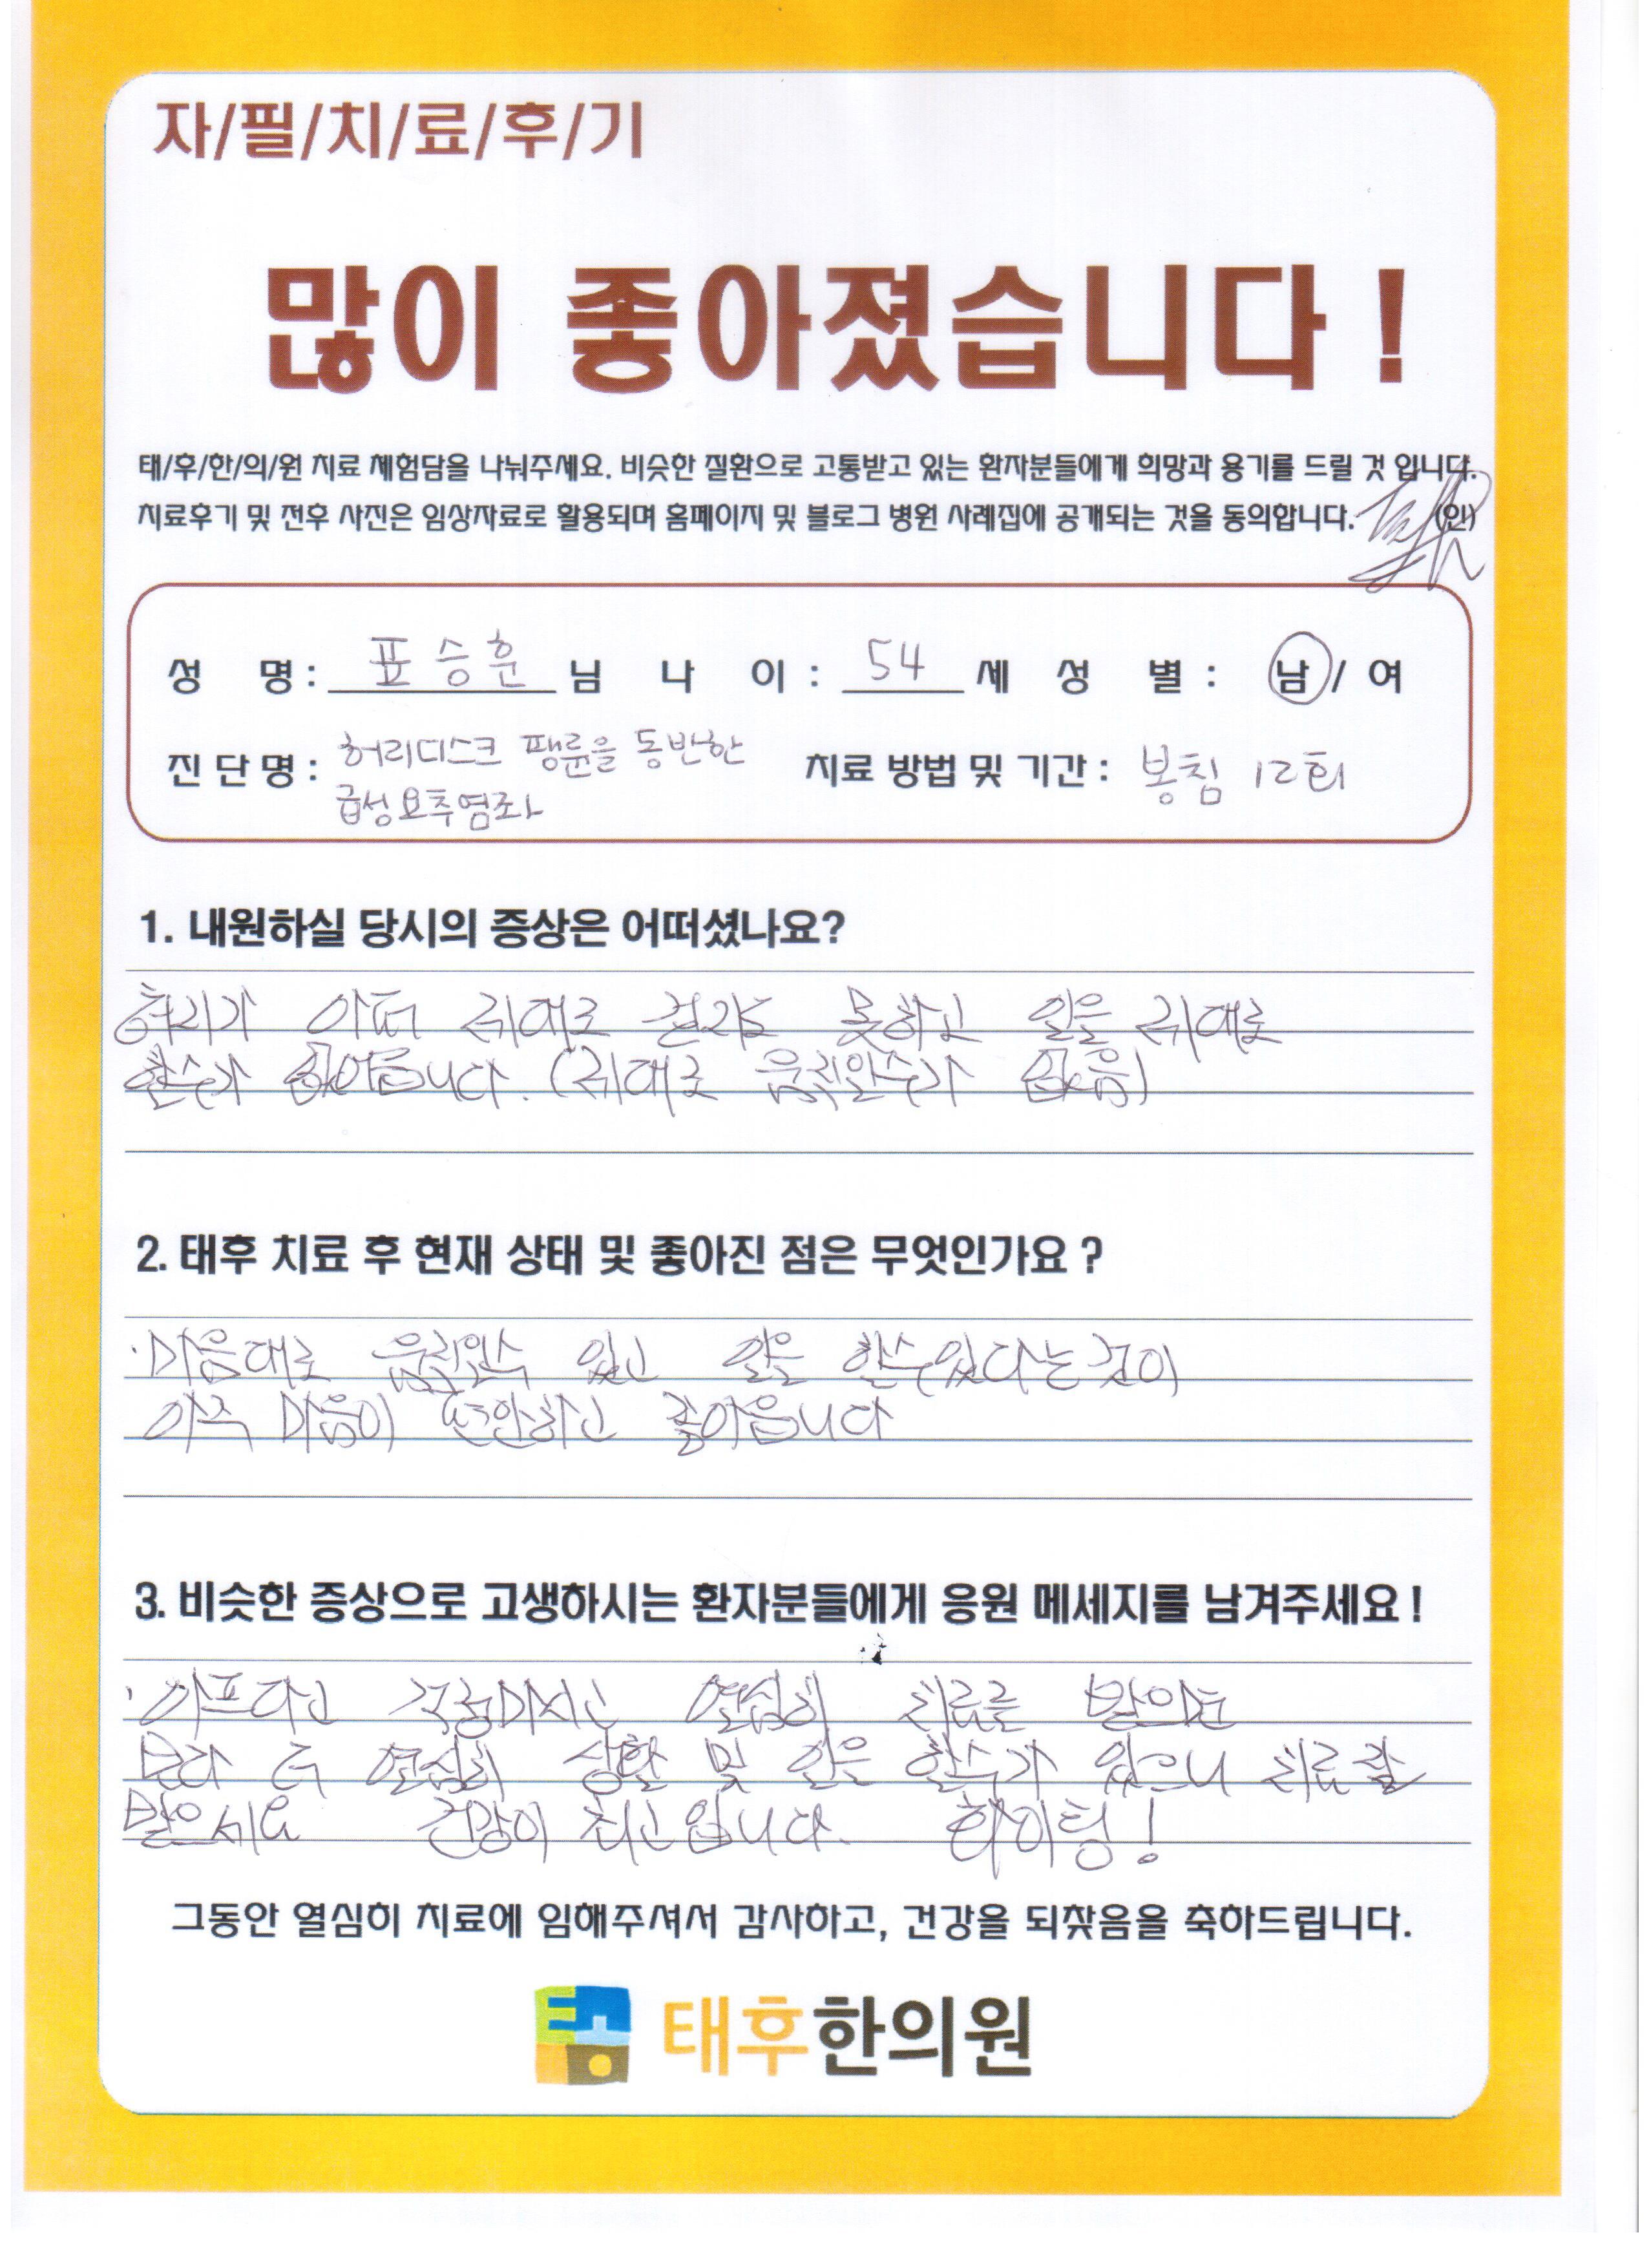 자/필/치/료/후/기
많이 좋아졌습니다 !
태/후/한/의/원 치료 체험담을 나눠주세요. 비슷한 질환으로 고통받고 있는 환자분들에게 희망과 용기를 드릴 것 입니다.
치료후기 및 전후 사진은 임상자료로 활용되며 홈페이지 및 블로그 병원 사례집에 공개되는 것을 동의합니다. (인)
성 명 : 표승훈 님 나 이 : 54 세 성 별 : 남 / 여
진 단 명 : 허리디스크 팽륜을 동반한 치료 방법 및 기간 : 봉침 12회
급성요추염좌
1. 내원하실 당시의 증상은 어떠셨나요?
허리가 아퍼 제대로 걷지도 못하고 일을 제대로
할수가 없어읍니다. (제대로 움직일수가 없음)
2. 태후 치료 후 현재 상태 및 좋아진 점은 무엇인가요 ?
·마음대로 움직일수 있고 일을 할수있다는것이
아주 마음이 편안하고 좋아읍니다
3. 비슷한 증상으로 고생하시는 환자분들에게 응원 메세지를 남겨주세요 !
· 아프다고 걱정마시고 열심히 치료를 받으면
보다 더 열심히 생활 및 일은 할수가 있으니 치료잘
받으세요 건강이 최고입니다. 화이팅!
그동안 열심히 치료에 임해주셔서 감사하고, 건강을 되찾음을 축하드립니다.
태후한의원